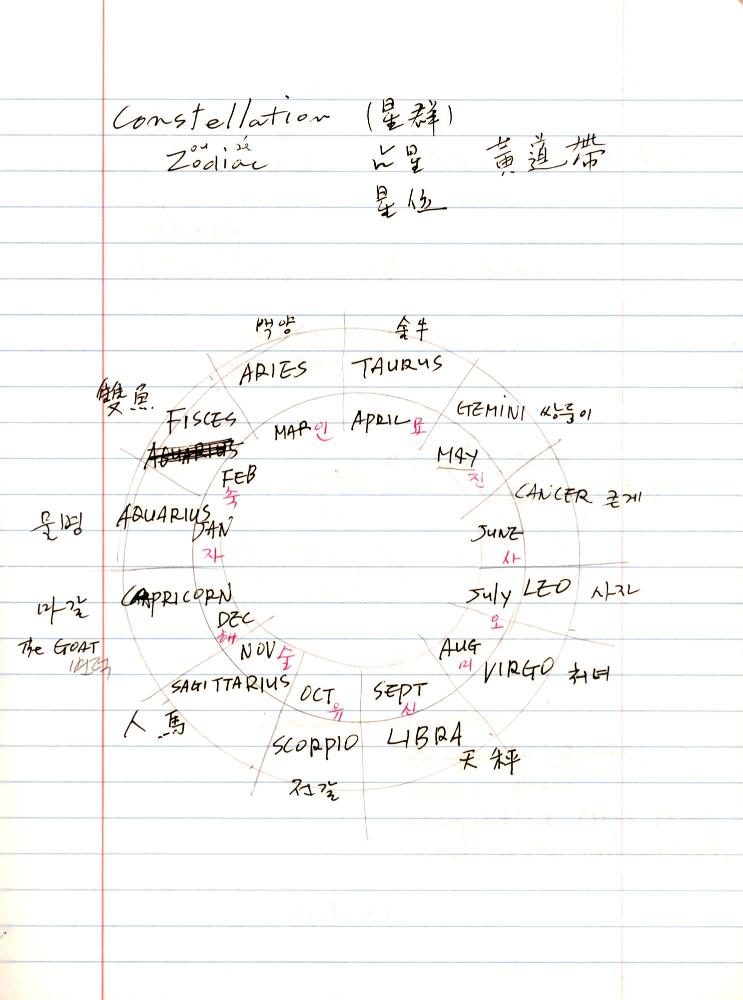 Constellation (星群)
Zodiac 占星 黃道帶
星位
백양 金牛
ARIES TAURUS
雙魚 FISCES MAR 인 APRIL 묘 GEMINI 쌍둥이
AQUARIUS
FEB MAY
진
CANCER 큰게
물병 AQUARIUS JAN JUNE
자 사
마갈 CAPRICORN July LEO 사자
DEC 오
해
The GOAT NOV 술 AUG
미 VIRGO 처녀
SAGITTARIUS OCT SEPT
유 신
人馬 SCORPIO LIBRA
天秤
전갈